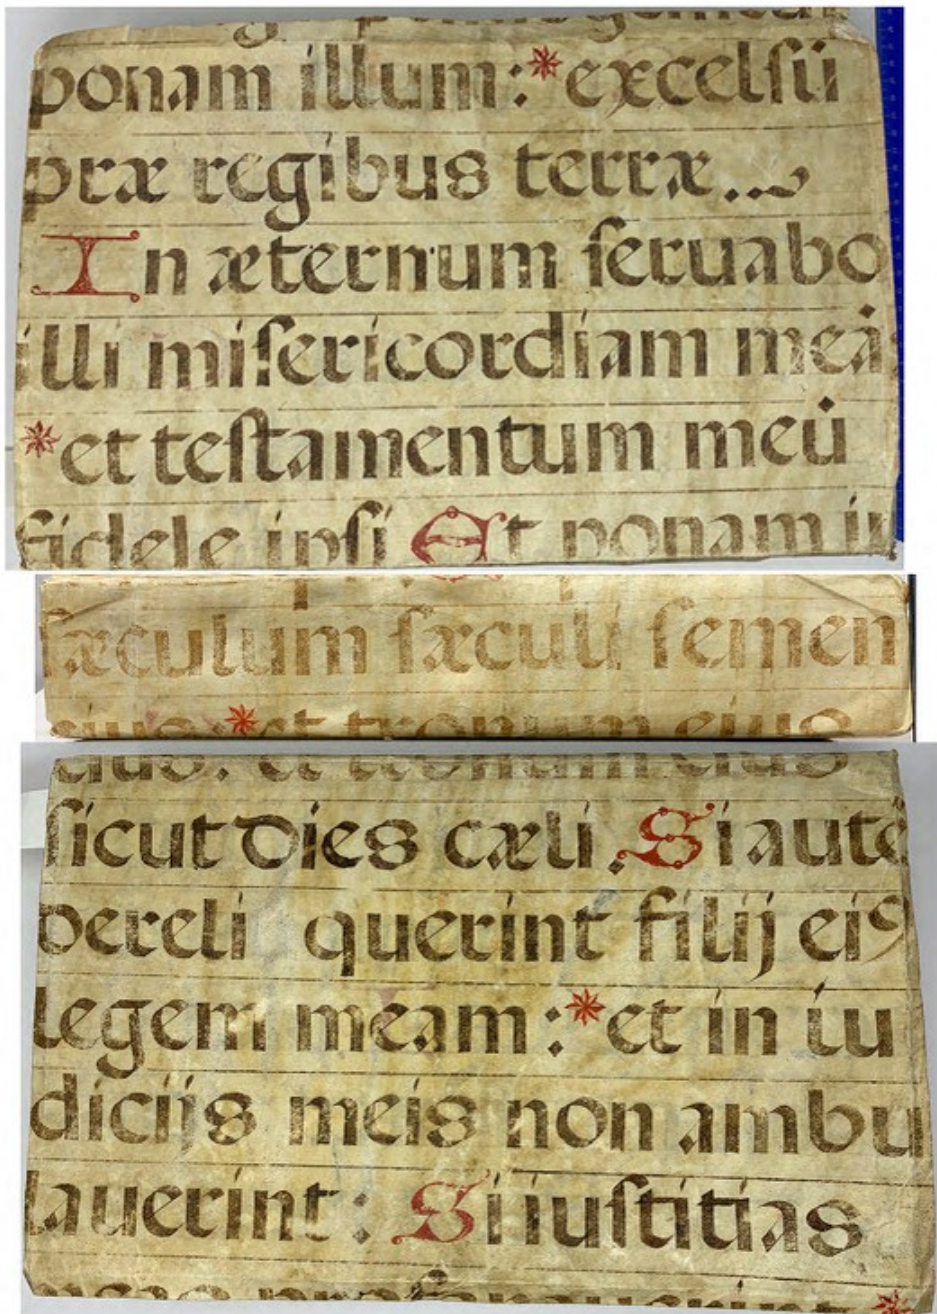 ponam illum:*excelsū
præ regibus terræ..
In æternum seruabo
illi misericordiam meā
*et testamentum meū
fidele ipsi Et ponam in
sæculum sæculi semen
eius:*et tronum eius
sicut dies cæli. Si autē
dereli querint filij eiꝰ
legem meam:*et in iu
dicijs meis non ambu
lauerint: Si iustitias